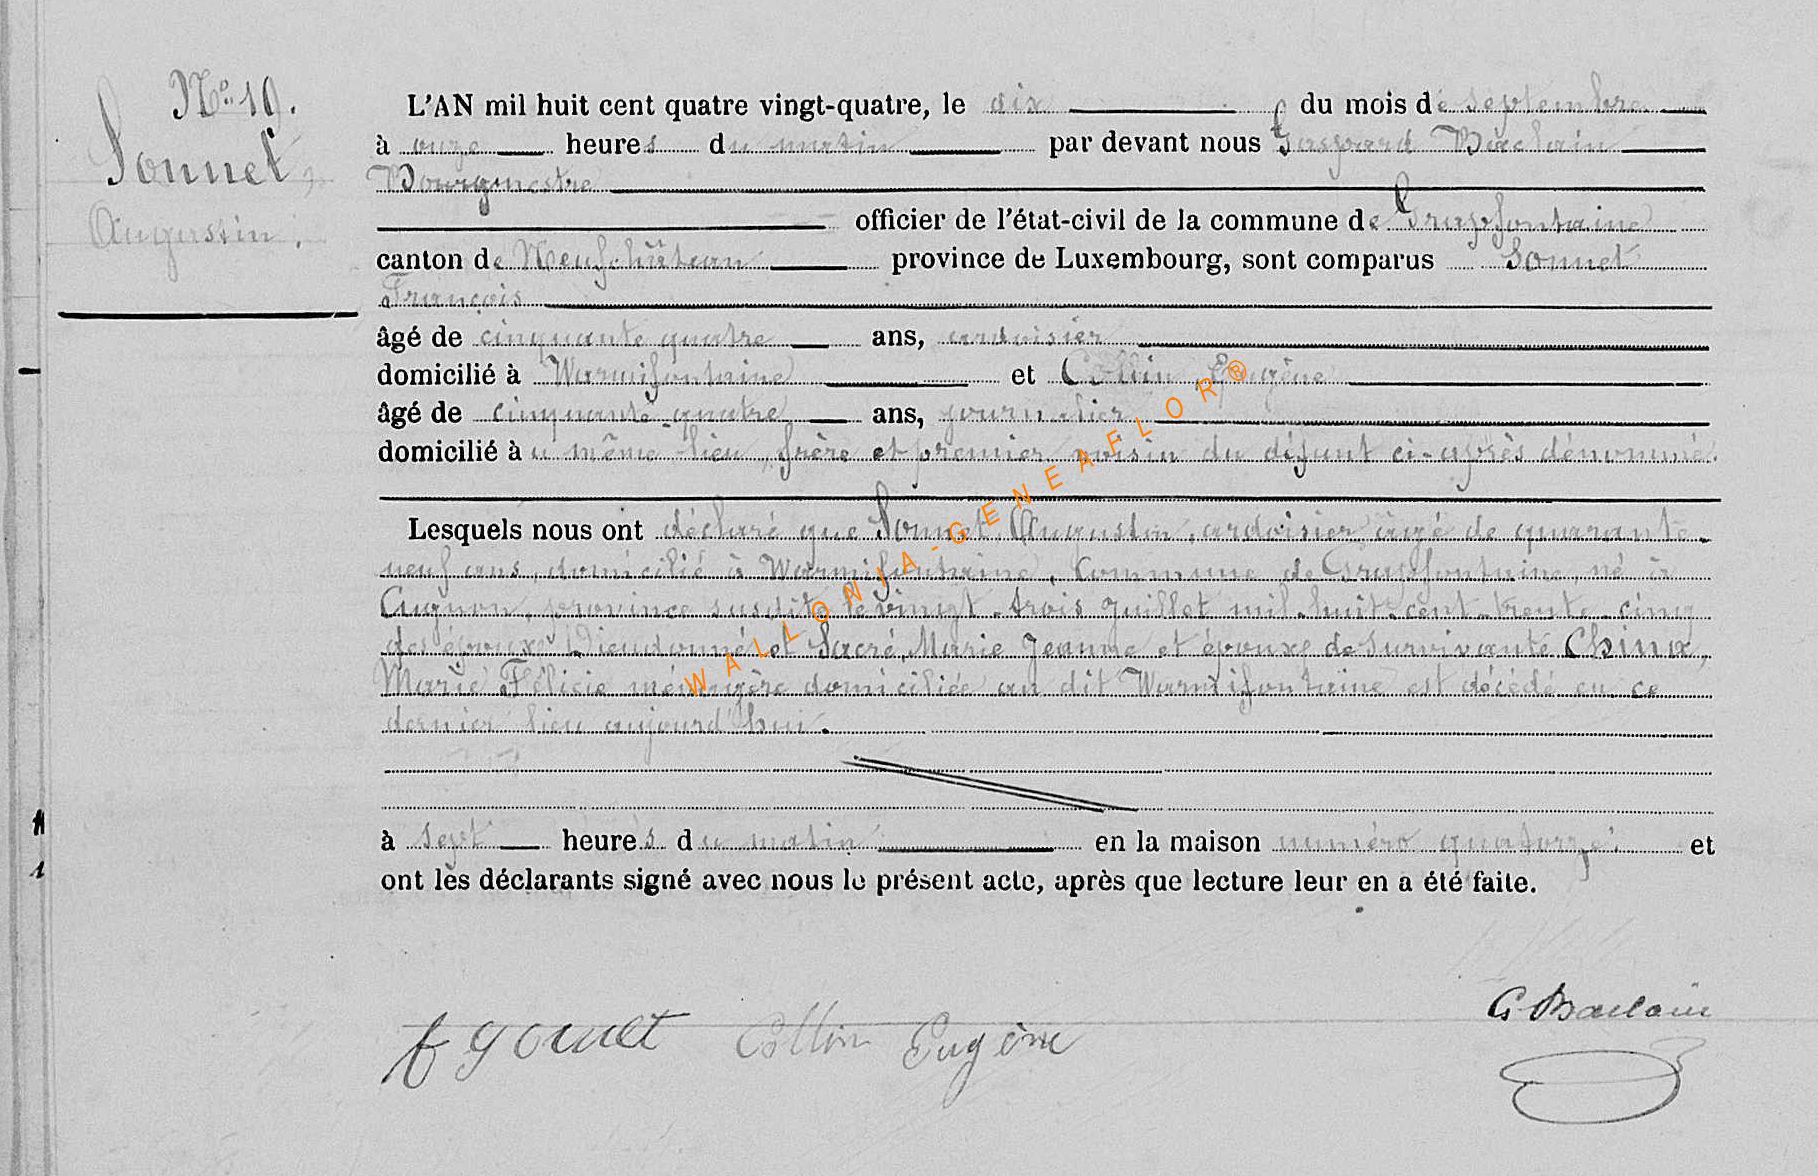 N° 10.
Sonnet,
Augustin.
L'AN mil huit cent quatre vingt-quatre, le dix du mois de septembre
à onze heures du matin par devant nous Gaspard Baclain
Bourgmestre
officier de l'état-civil de la commune de Grapfontaine
canton de Neufchâteau province de Luxembourg, sont comparus Sonnet
François
âgé de cinquante quatre ans, ardoisier
domicilié à Warmifontaine et Collin Eugène
âgé de cinquante-quatre ans, journalier
domicilié au même lieu, frère et premier voisin du défunt ci-après dénommé.
Lesquels nous ont déclaré que Sonnet, Augustin, ardoisier, âgé de quarante-
neuf ans, domicilié à Warmifontaine, commune de Grapfontaine, né à
Cugnon, province susdite le vingt-trois juillet mil-huit-cent-trente-cinq
des époux Dieudonné et Sacré, Marie Jeanne et époux de survivante Chinа,
Marie Félicie ménagère domiciliée au dit Warmifontaine est décédé en ce
dernier lieu aujourd'hui.
à sept heures du matin en la maison numéro quatorze et
ont les déclarants signé avec nous le présent acte, après que lecture leur en a été faite.
G Baclain
f Sonnet Collin Eugène
WALLONIA-GENEAFLOR®